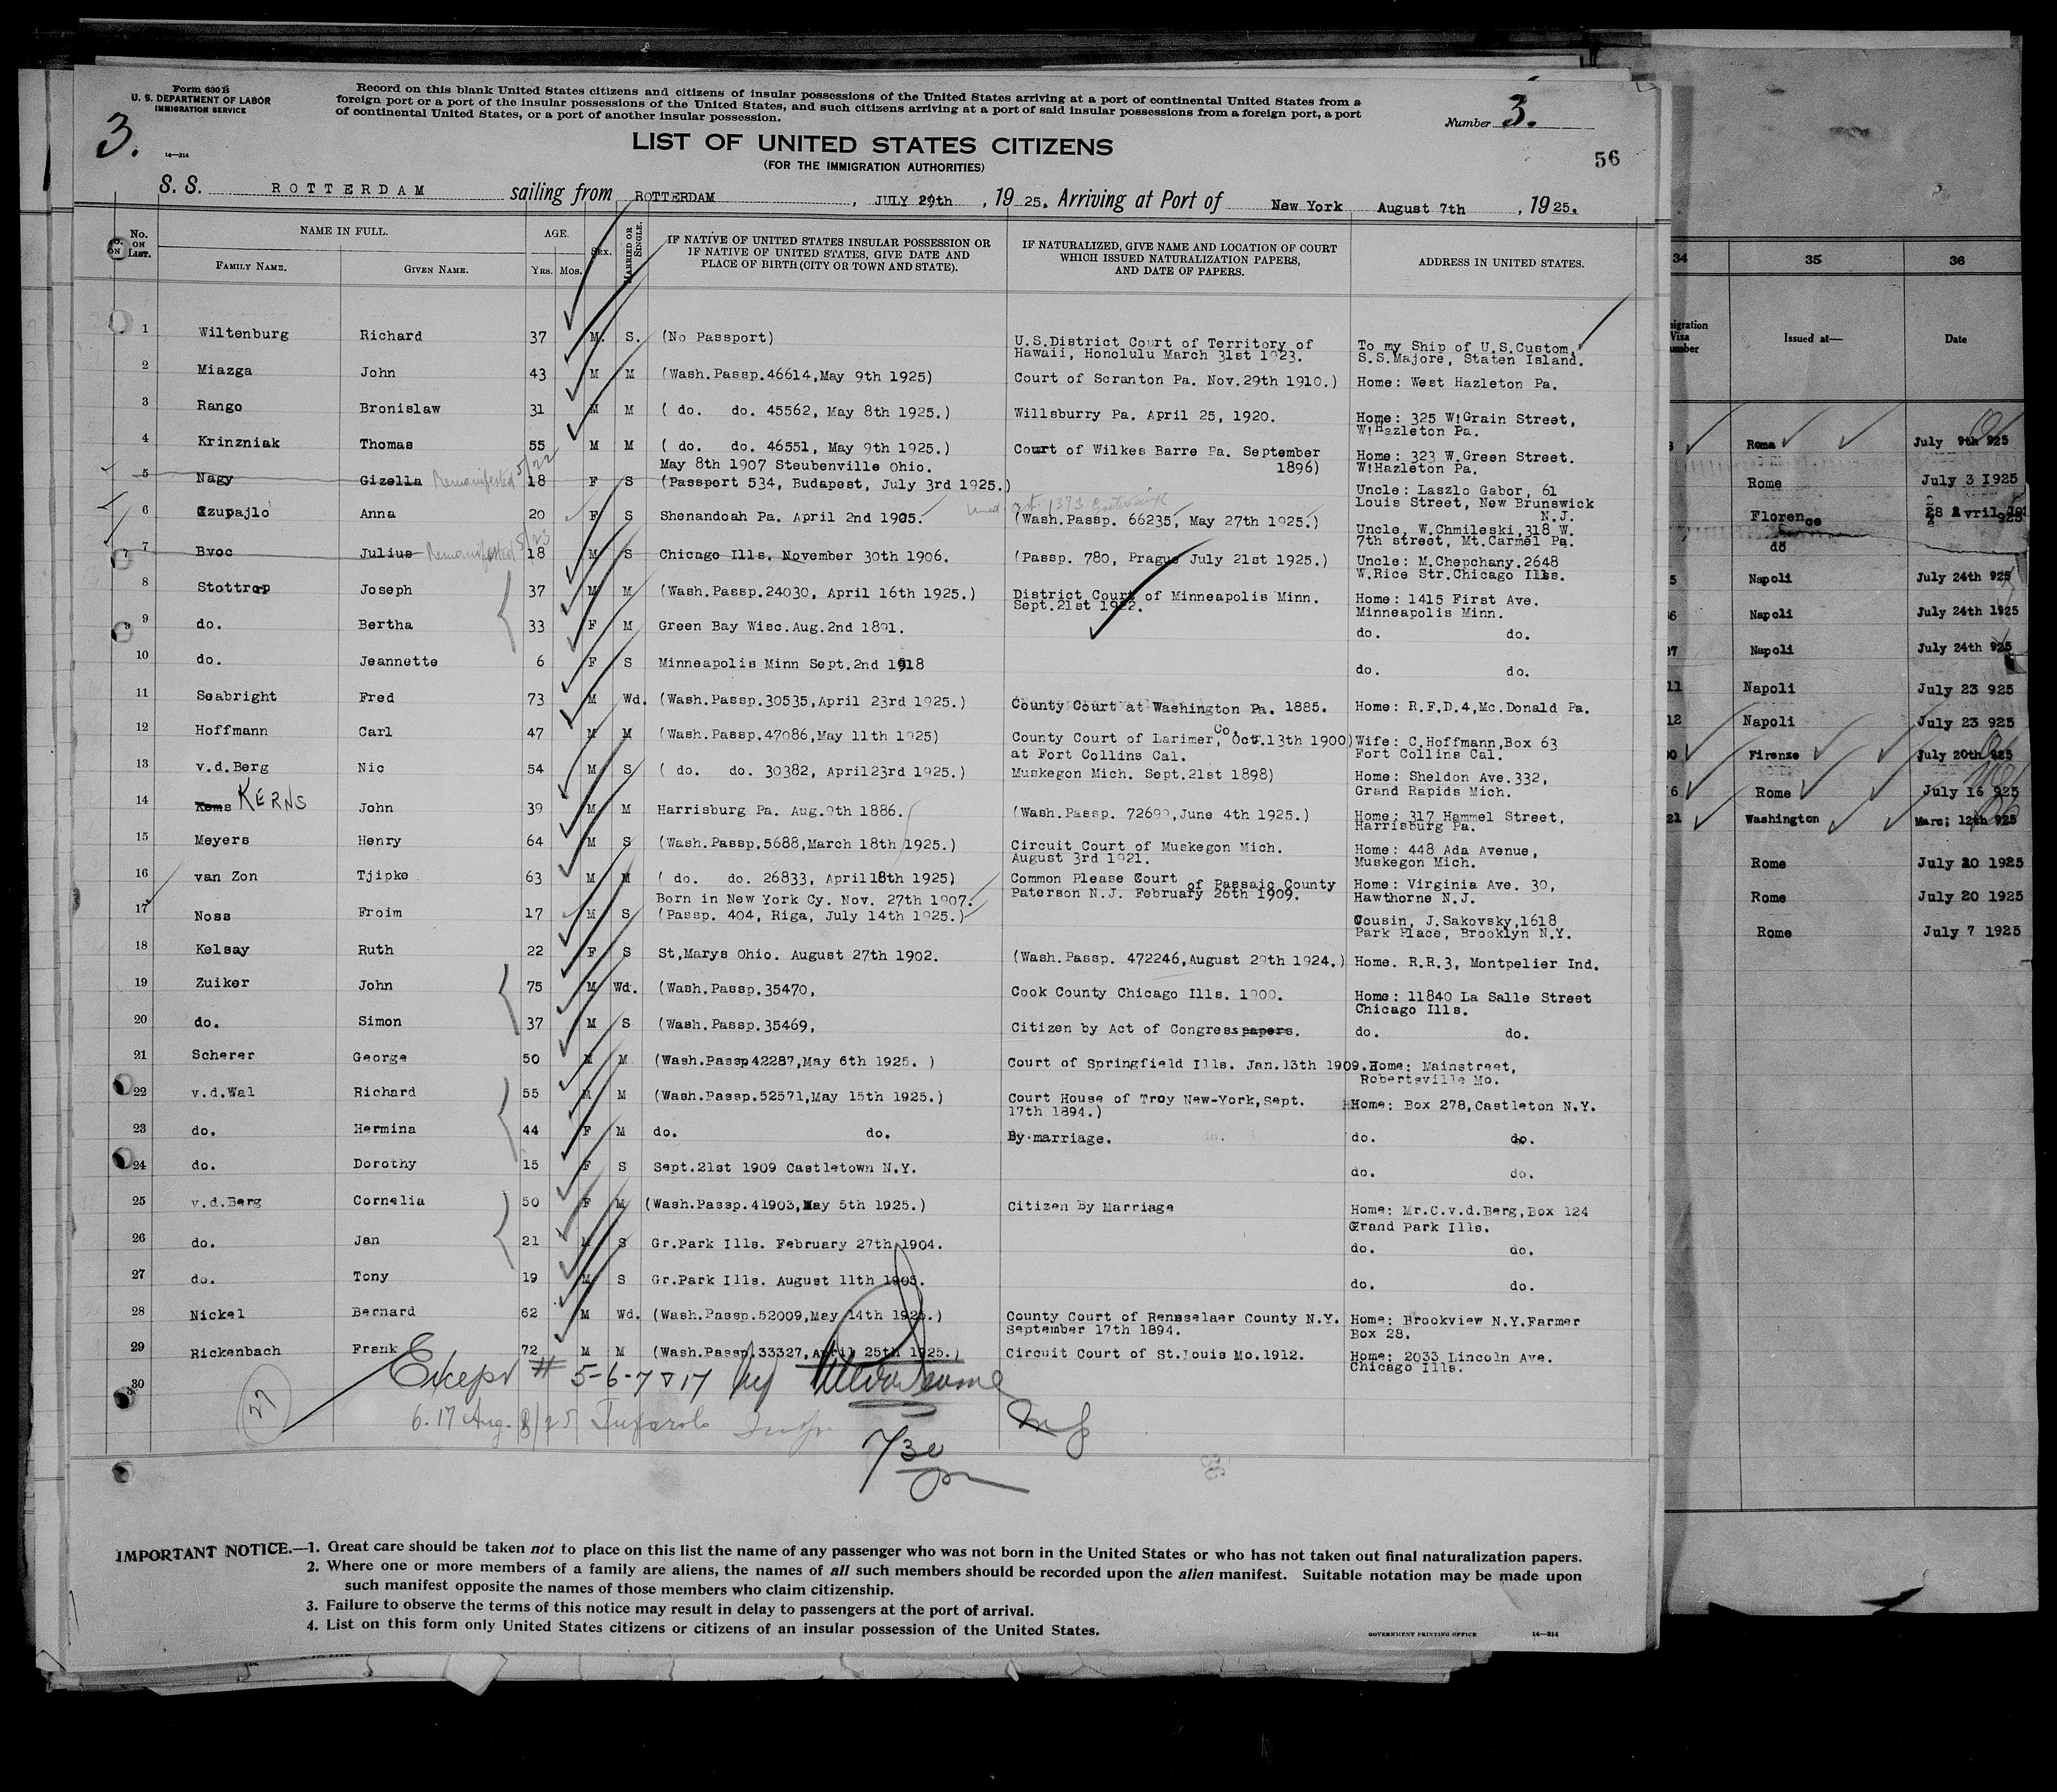 Form 630 B
U. S. DEPARTMENT OF LABOR
IMMIGRATION SERVICE
3.
14—214
Record on this blank United States citizens and citizens of insular possessions of the United States arriving at a port of continental United States from a
foreign port or a port of the insular possessions of the United States, and such citizens arriving at a port of said insular possessions from a foreign port, a port
of continental United States, or a port of another insular possession.
Number 3.
LIST OF UNITED STATES CITIZENS
(FOR THE IMMIGRATION AUTHORITIES)
56
S. S. ROTTERDAM sailing from ROTTERDAM, JULY 29th, 1925. Arriving at Port of New York August 7th, 1925.
No. ON LIST. NAME IN FULL. AGE. SEX. MARRIED OR SINGLE. IF NATIVE OF UNITED STATES INSULAR POSSESSION OR IF NATIVE OF UNITED STATES, GIVE DATE AND PLACE OF BIRTH (CITY OR TOWN AND STATE). IF NATURALIZED, GIVE NAME AND LOCATION OF COURT WHICH ISSUED NATURALIZATION PAPERS, AND DATE OF PAPERS. ADDRESS IN UNITED STATES.
FAMILY NAME. GIVEN NAME. YRS. MOS.
1 Wiltenburg Richard 37 M. S. (No Passport) U.S.District Court of Territory of Hawaii, Honolulu March 31st 1923. To my Ship of U.S.Custom, S.S.Majore, Staten Island.
2 Miazga John 43 M M (Wash.Passp.46614,May 9th 1925) Court of Scranton Pa. Nov.29th 1910.) Home: West Hazleton Pa.
3 Rango Bronislaw 31 M M ( do. do. 45562, May 8th 1925.) Willsburry Pa. April 25, 1920. Home: 325 W!Grain Street, W!Hazleton Pa.
4 Krinzniak Thomas 55 M M ( do. do. 46551, May 9th 1925.) Court of Wilkes Barre Pa. September 1896) Home: 323 W.Green Street. W!Hazleton Pa.
5 Nagy Gizella Remanifested 5/22 18 F S May 8th 1907 Steubenville Ohio. (Passport 534, Budapest, July 3rd 1925.) Uncle: Laszlo Gabor, 61 Louis Street, New Brunswick N.J.
6 Czupajlo Anna 20 F S Shenandoah Pa. April 2nd 1905. (Wash.Passp. 66235, May 27th 1925.) Uncle, W.Chmileski,318 W. 7th street, Mt.Carmel Pa.
7 Bvoc Julius Remanifested 5/23 18 M S Chicago Ills. November 30th 1906. (Passp. 780, Prague July 21st 1925.) Uncle: M.Chepchany.2648 W.Rice Str.Chicago Ills.
8 Stottrop Joseph 37 M M (Wash.Passp.24030, April 16th 1925.) District Court of Minneapolis Minn. Sept.21st 1922. Home: 1415 First Ave. Minneapolis Minn.
9 do. Bertha 33 F M Green Bay Wisc.Aug.2nd 1891. do. do.
10 do. Jeannette 6 F S Minneapolis Minn Sept.2nd 1918 do. do.
11 Seabright Fred 73 M Wd. (Wash.Passp.30535,April 23rd 1925.) County Court at Washington Pa. 1885. Home: R.F.D.4,Mc.Donald Pa.
12 Hoffmann Carl 47 M M (Wash.Passp.47086,May 11th 1925) County Court of Larimer, Co. Oct.13th 1900) at Fort Collins Cal. Wife: C.Hoffmann,Box 63 Fort Collins Cal.
13 v.d.Berg Nic 54 M S ( do. do. 30382, April23rd 1925.) Muskegon Mich. Sept.21st 1898) Home: Sheldon Ave.332, Grand Rapids Mich.
14 Kems KERNS John 39 M M Harrisburg Pa. Aug.9th 1886. (Wash.Passp. 72699,June 4th 1925.) Home: 317 Hammel Street, Harrisburg Pa.
15 Meyers Henry 64 M S (Wash.Passp.5688,March 18th 1925.) Circuit Court of Muskegon Mich. August 3rd 1921. Home: 448 Ada Avenue, Muskegon Mich.
16 van Zon Tjipke 63 M M ( do. do. 26833, April18th 1925) Common Please Court of Passaic County Paterson N.J. February 26th 1909. Home: Virginia Ave. 30, Hawthorne N.J.
17 Noss Froim 17 M S Born in New York Cy. Nov. 27th 1907. (Passp. 404, Riga, July 14th 1925.) Cousin, J.Sakovsky,1618 Park Place, Brooklyn N.Y.
18 Kelsay Ruth 22 F S St,Marys Ohio. August 27th 1902. (Wash.Passp. 472246,August 29th 1924.) Home. R.R.3, Montpelier Ind.
19 Zuiker John 75 M Wd. (Wash.Passp.35470, Cook County Chicago Ills. 1900. Home: 11840 La Salle Street Chicago Ills.
20 do. Simon 37 M S (Wash.Passp.35469, Citizen by Act of Congress papers. do. do.
21 Scherer George 50 M M (Wash.Passp42287,May 6th 1925. ) Court of Springfield Ills. Jan.13th 1909. Home: Mainstreet, Robertsville Mo.
22 v.d.Wal Richard 55 M M (Wash.Passp.52571,May 15th 1925.) Court House of Troy New-York,Sept. 17th 1894.) Home: Box 278,Castleton N.Y.
23 do. Hermina 44 F M do. do. By marriage. do. do.
24 do. Dorothy 15 F S Sept.21st 1909 Castletown N.Y. do. do.
25 v.d.Berg Cornelia 50 F M (Wash.Passp.41903,May 5th 1925.) Citizen by Marriage Home: Mr.C.v.d.Berg,Box 124 Grand Park Ills.
26 do. Jan 21 M S Gr.Park Ills. February 27th 1904. do. do.
27 do. Tony 19 M S Gr.Park Ills. August 11th 1905. do. do.
28 Nickel Bernard 62 M Wd. (Wash.Passp.52009,May 14th 1925.) County Court of Rensselaer County N.Y. September 17th 1894. Home: Brookview N.Y.Farmer Box 28.
29 Rickenbach Frank 72 M M (Wash.Passp.33327,April 25th 1925.) Circuit Court of St.Louis Mo.1912. Home: 2033 Lincoln Ave. Chicago Ills.
30
27
Except # 5-6-7 17 by
6.17 Aug. 8/25 Insp.
7 30
IMPORTANT NOTICE.—1. Great care should be taken not to place on this list the name of any passenger who was not born in the United States or who has not taken out final naturalization papers.
2. Where one or more members of a family are aliens, the names of all such members should be recorded upon the alien manifest. Suitable notation may be made upon
such manifest opposite the names of those members who claim citizenship.
3. Failure to observe the terms of this notice may result in delay to passengers at the port of arrival.
4. List on this form only United States citizens or citizens of an insular possession of the United States.
GOVERNMENT PRINTING OFFICE 14—214
34 35 36
Issued at— Date
Roma July 9th 925
Rome July 3 1925
Florence 28 Avril
do
Napoli July 24th 925
Napoli July 24th 1925
Napoli July 24th 925
Napoli July 23 925
Napoli July 23 925
Firenze July 20th 925
Rome July 16 925
Washington Marc; 12th 925
Rome July 20 1925
Rome July 20 1925
Rome July 7 1925